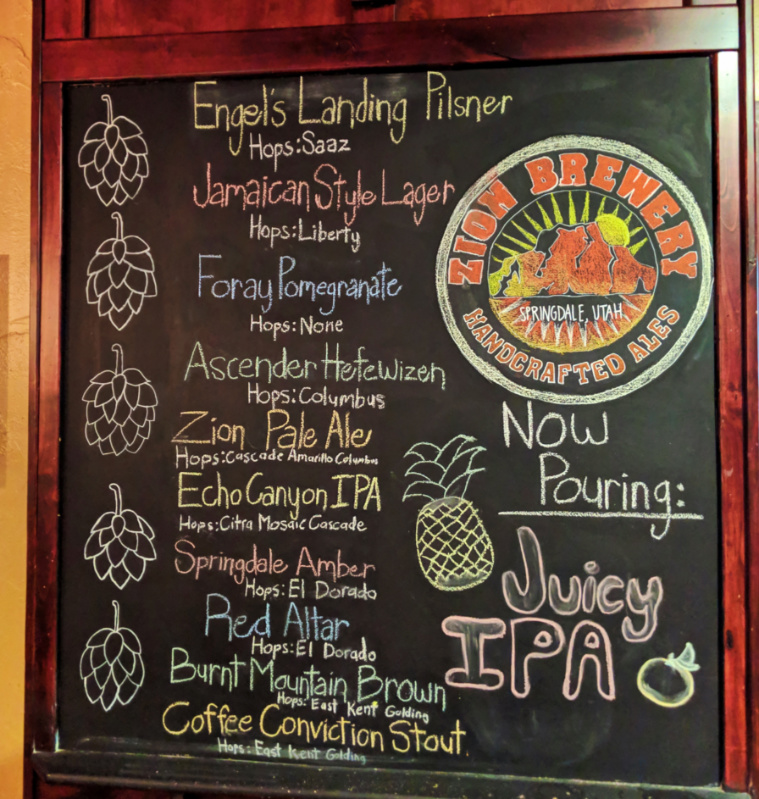 Engel's Landing Pilsner
Hops: Saaz
Jamaican Style Lager
Hops: Liberty
Foray Pomegranate
Hops: None
Ascender Hefewizen
Hops: Columbus
Zion Pale Ale
Hops: Cascade Amarillo Columbus
Echo Canyon IPA
Hops: Citra Mosaic Cascade
Springdale Amber
Hops: El Dorado
Red Altar
Hops: El Dorado
Burnt Mountain Brown
Hops: East Kent Golding
Coffee Conviction Stout
Hops: East Kent Golding
ZION BREWERY
SPRINGDALE, UTAH
HANDCRAFTED ALES
Now
Pouring:
Juicy
IPA